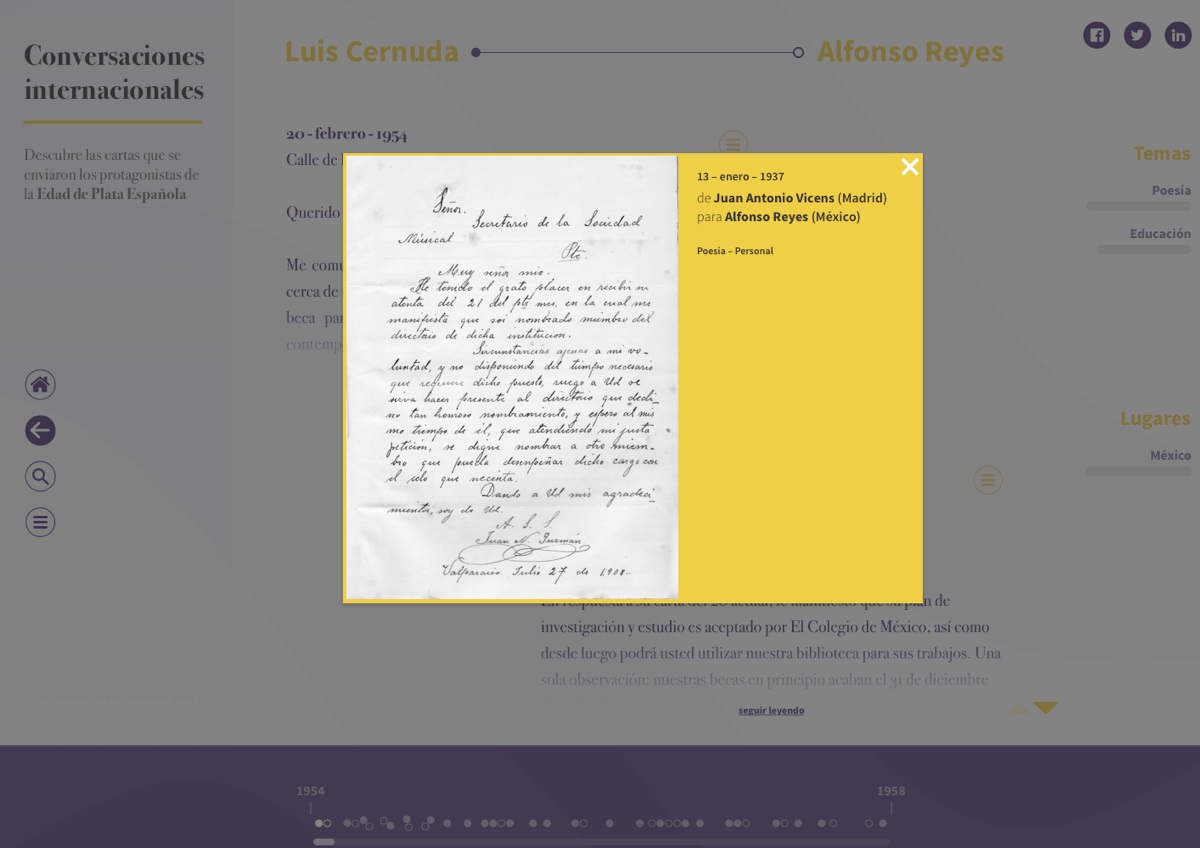 Conversaciones
internacionales
Descubre las cartas que se
enviaron los protagonistas de
la Edad de Plata Española
Luis Cernuda
Alfonso Reyes
20 - febrero - 1954
Calle de
Querido
Me comu
cerca de
beca par
contemp
Señor.
Secretario de la Sociedad
Músical
Pte.
Muy señor mio.
He tenido el grato placer en recibir su
atenta del 21 del pte mes, en la cual me
manifiesta que soi nombrado miembro del
directorio de dicha institucion.
Sircunstancias ajenas a mi vo-
luntad, y no disponiendo del tiempo necesario
que requiere dicho puesto, ruego a Ud se
sirva hacer presente al directorio que decli_
no tan honroso nombramiento, y espero al mis
mo tiempo de él, que atendiendo mi justa
petición, se digne nombrar a otro miem-
bro que pueda desenpeñar dicho cargo con
el celo que necesita.
Dando a Ud mis agradeci_
mientos, soy de Ud.
A. S. S.
Juan N. Guzmán
Valparaiso Julio 27 de 1908..
13 – enero – 1937
de Juan Antonio Vicens (Madrid)
para Alfonso Reyes (México)
Poesía – Personal
En respuesta a su carta del 20 actual, le manifiesto que su plan de
investigación y estudio es aceptado por El Colegio de México, así como
desde luego podrá usted utilizar nuestra biblioteca para sus trabajos. Una
sola observación: nuestras becas en principio acaban el 31 de diciembre
seguir leyendo
Temas
Poesía
Educación
Lugares
México
1954
1958